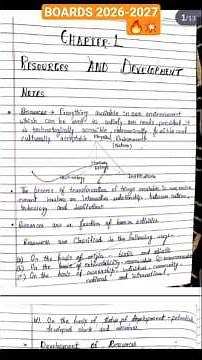 BOARDS 2026-2027
1/13
CHAPTER-1
RESOURCES AND DEVELOPMENT
NOTES
Resources → Everything available in our environment
which can be used to satisfy our needs, provided it
is technologically accessible, economically feasible and
culturally acceptable. Physical Environment
(Nature)
Technology
Institutions
The process of transformation of things available in our environment
involves an interactive relationship between nature,
technology and institutions.
Resources are a function of human activities.
Resources are classified in the following ways-
(i) On the basis of origin - biotic and abiotic
(ii) On the basis of exhaustibility - renewable and
(iii) On the basis of ownership - individual, community,
national and international.
(iv) On the basis of status of development - potential,
developed stock and reserves.
Development of Resources